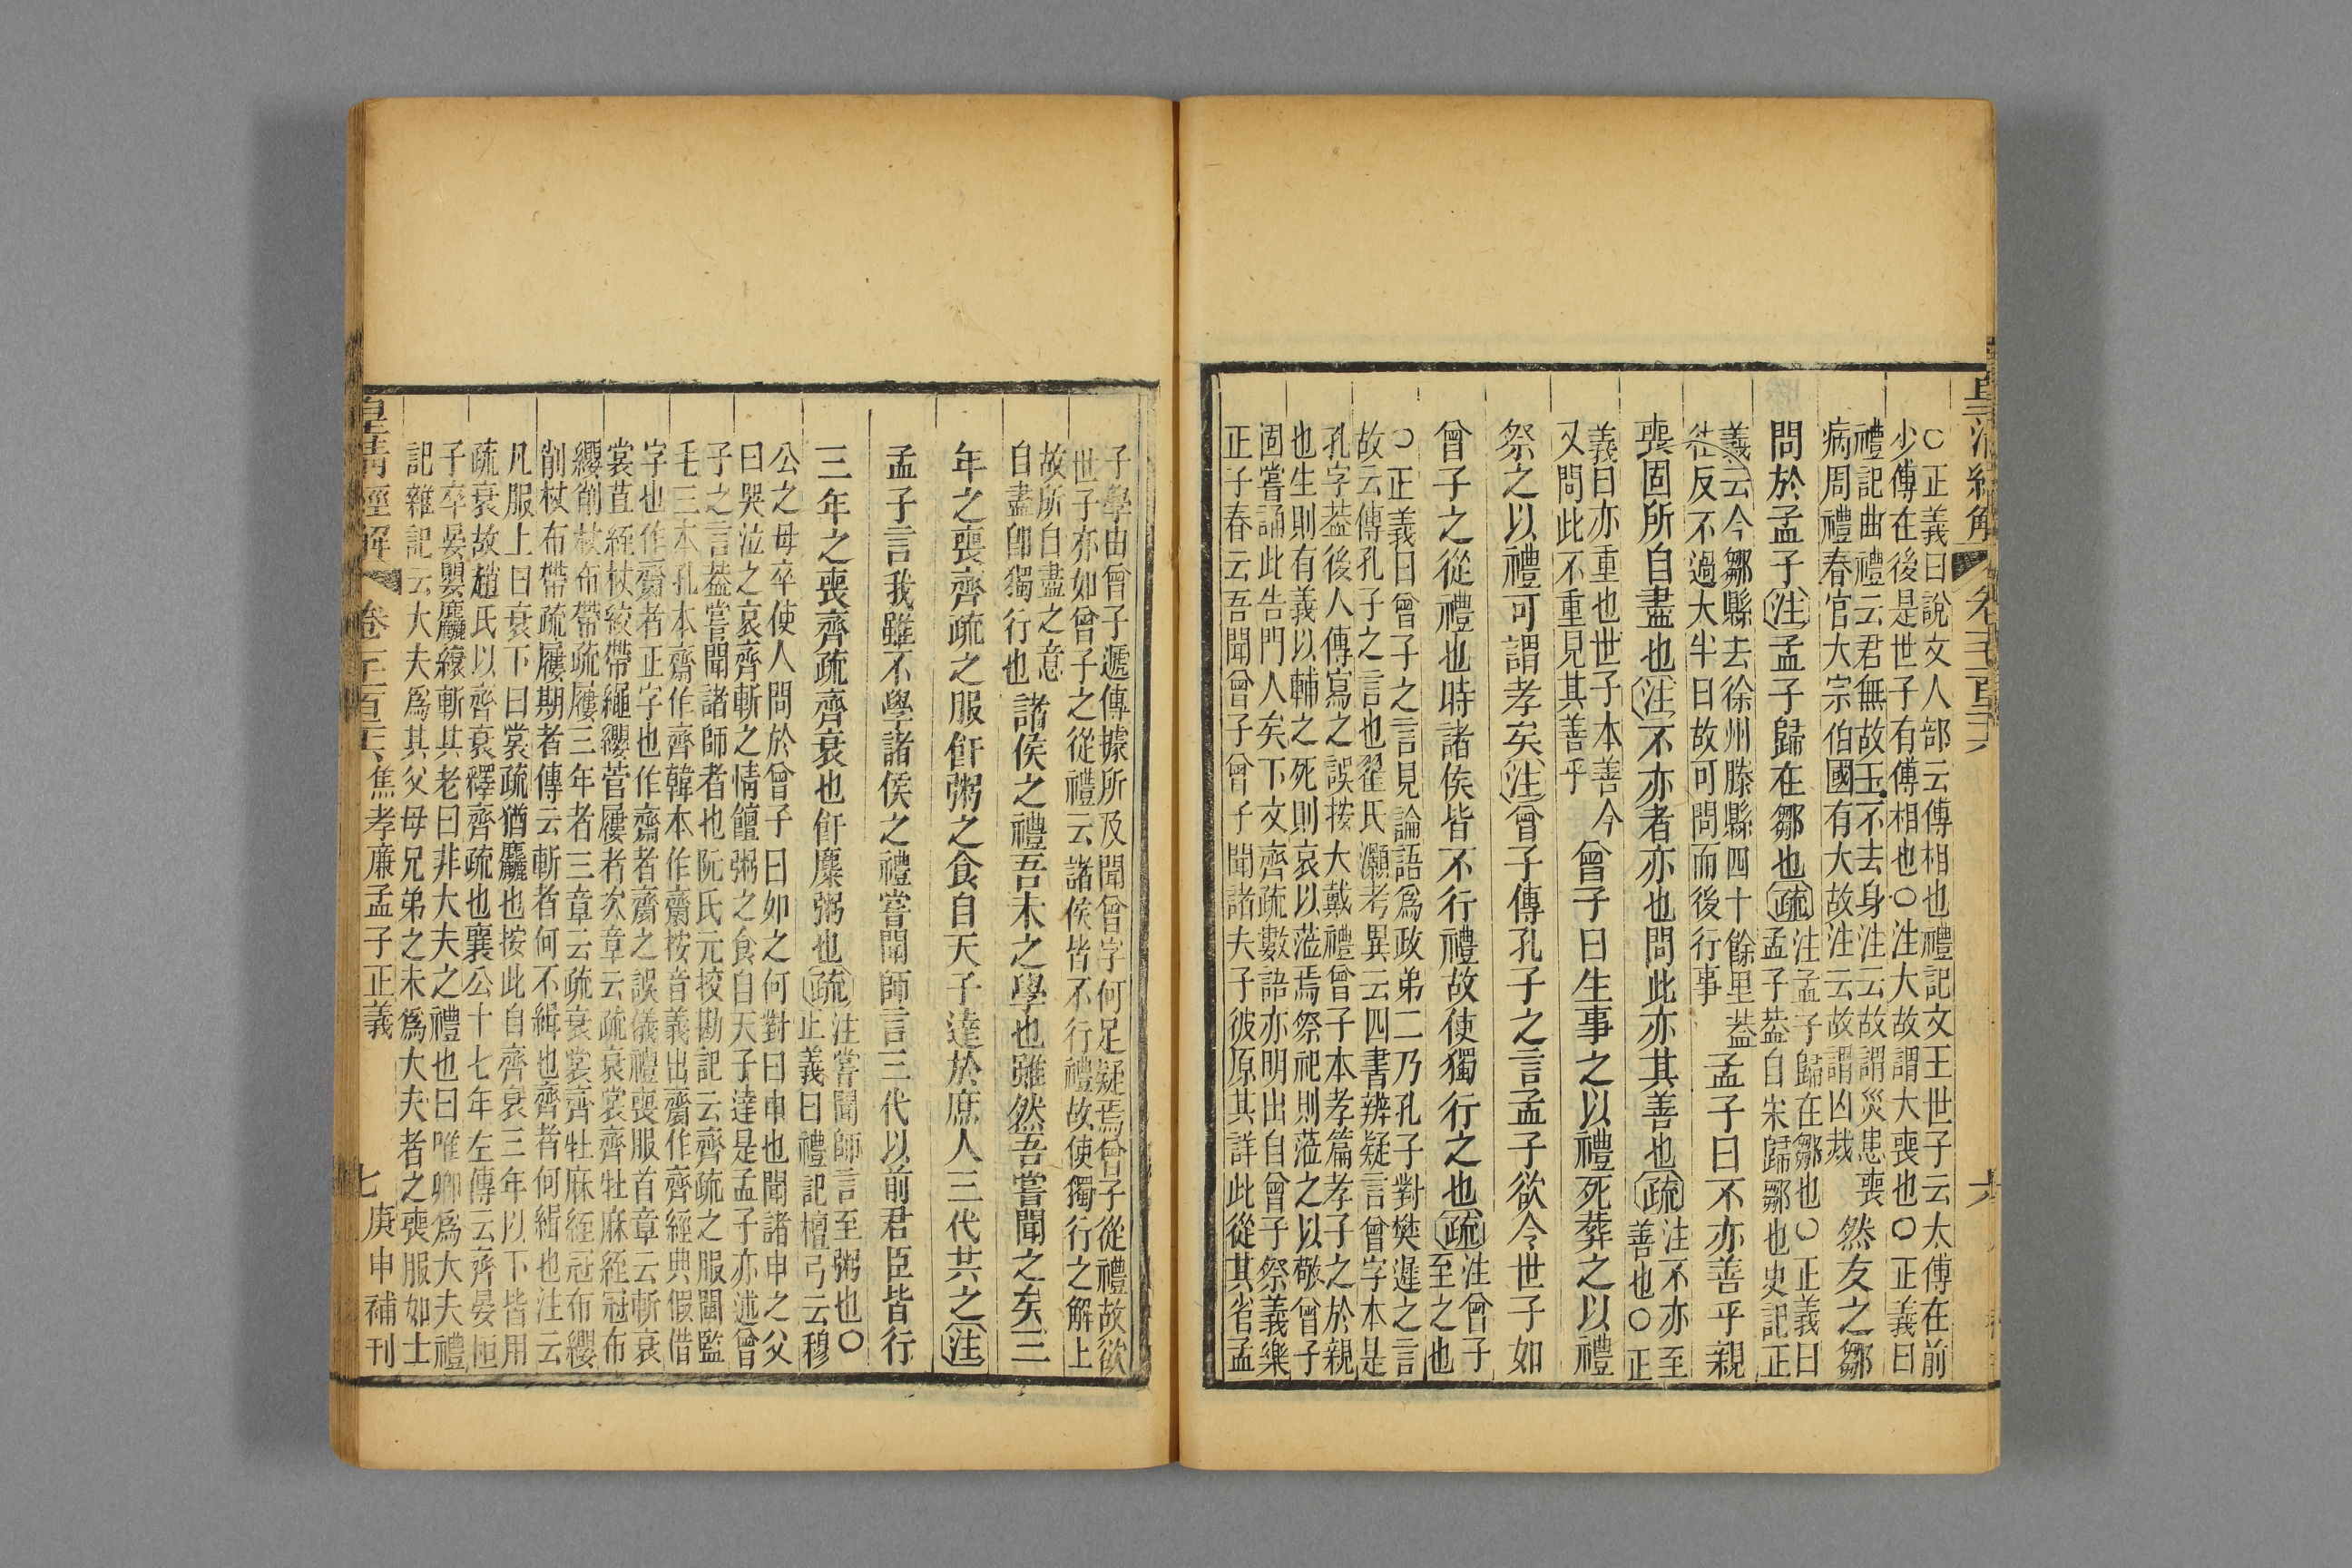 皇清經解
○正義曰說文人部云傅相也禮記文王世子云太傅在前
少傅在後是世子有傅相也○注大故謂大喪也○正義曰
禮記曲禮云君無故玉不去身注云故謂災患喪
病周禮春官大宗伯國有大故注云故謂凶烖
然友之鄒
問於孟子注孟子歸在鄒也疏
注孟子歸在鄒也○正義曰
孟子葢自宋歸鄒也史記正
義云今鄒縣去徐州滕縣四十餘里葢
往反不過大半日故可問而後行事
孟子曰不亦善乎親
喪固所自盡也注不亦者亦也問此亦其善也疏
注不亦至
善也○正
義曰亦重也世子本善今
又問此不重見其善乎
曾子曰生事之以禮死葬之以禮
祭之以禮可謂孝矣注曾子傳孔子之言孟子欲令世子如
曾子之從禮也時諸侯皆不行禮故使獨行之也疏
注曾子
至之也
○正義曰曾子之言見論語爲政弟二乃孔子對樊遲之言
故云傳孔子之言也翟氏灝考異云四書辨疑言曾字本是
孔字葢後人傳寫之誤按大戴禮曾子本孝篇孝子之於親
也生則有義以輔之死則哀以蒞焉祭祀則蒞之以敬曾子
固嘗誦此告門人矣下文齊疏數語亦明出自曾子祭義樂
正子春云吾聞曾子曾子聞諸夫子彼原其詳此從其省孟
子學由曾子遞傳據所及聞曾字何足疑焉曾子從禮故欲
世子亦如曾子之從禮云諸侯皆不行禮故使獨行之解上
故所自盡之意
自盡卽獨行也
諸侯之禮吾未之學也雖然吾嘗聞之矣三
年之喪齊疏之服飦粥之食自天子達於庶人三代共之注
孟子言我雖不學諸侯之禮嘗聞師言三代以前君臣皆行
三年之喪齊疏齊衰也飦糜粥也疏
注嘗聞師言至粥也○
正義曰禮記檀弓云穆
公之母卒使人問於曾子曰如之何對曰申也聞諸申之父
曰哭泣之哀齊斬之情饘粥之食自天子達是孟子亦述曾
子之言葢嘗聞諸師者也阮氏元挍勘記云齊疏之服閩監
毛三本孔本齊作齊韓本作齋按音義出齋作齊經典假借
字也作齋者正字也作齋者齋之誤儀禮喪服首章云斬衰
裳苴絰杖絞帶繩纓菅屨者次章云疏衰裳齊牡麻絰冠布
纓削杖布帶疏屨三年者三章云疏衰裳齊牡麻絰冠布纓
削杖布帶疏屨期者傳云斬者何不緝也齊者何緝也注云
凡服上曰衰下曰裳疏猶麤也按此自齊衰三年以下皆用
疏衰故趙氏以齊衰釋齊疏也襄公十七年左傳云齊晏桓
子卒晏嬰麤縗斬其老曰非大夫之禮也曰唯卿爲大夫禮
記雜記云大夫爲其父母兄弟之未爲大夫者之喪服如士
皇清經解
焦孝廉孟子正義
七
庚申補刊